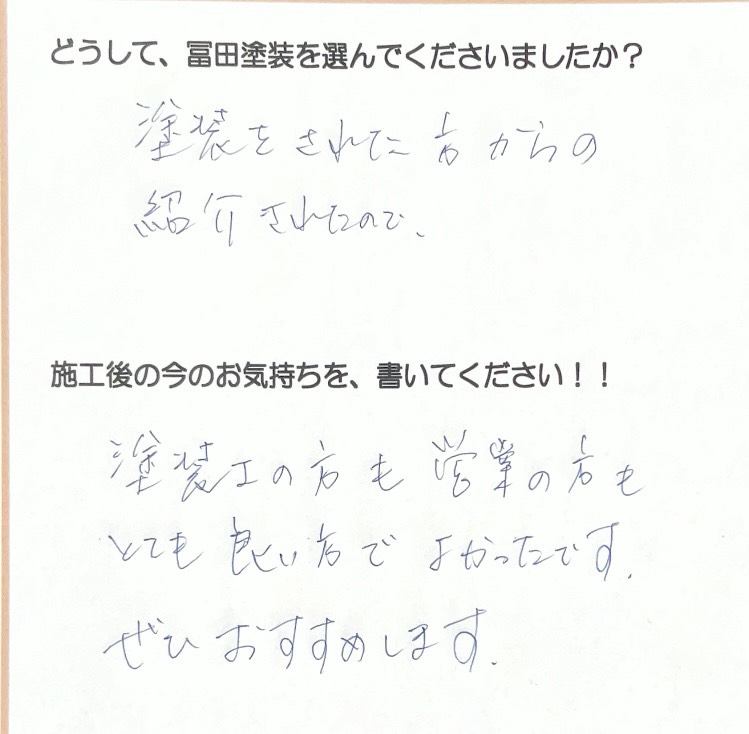 どうして、冨田塗装を選んでくださいましたか？
塗装をされてた方からの
紹介されたので、
施工後の今のお気持ちを、書いてください！！
塗装工の方も営業の方も
とても良い方でよかったです。
ぜひおすすめします。